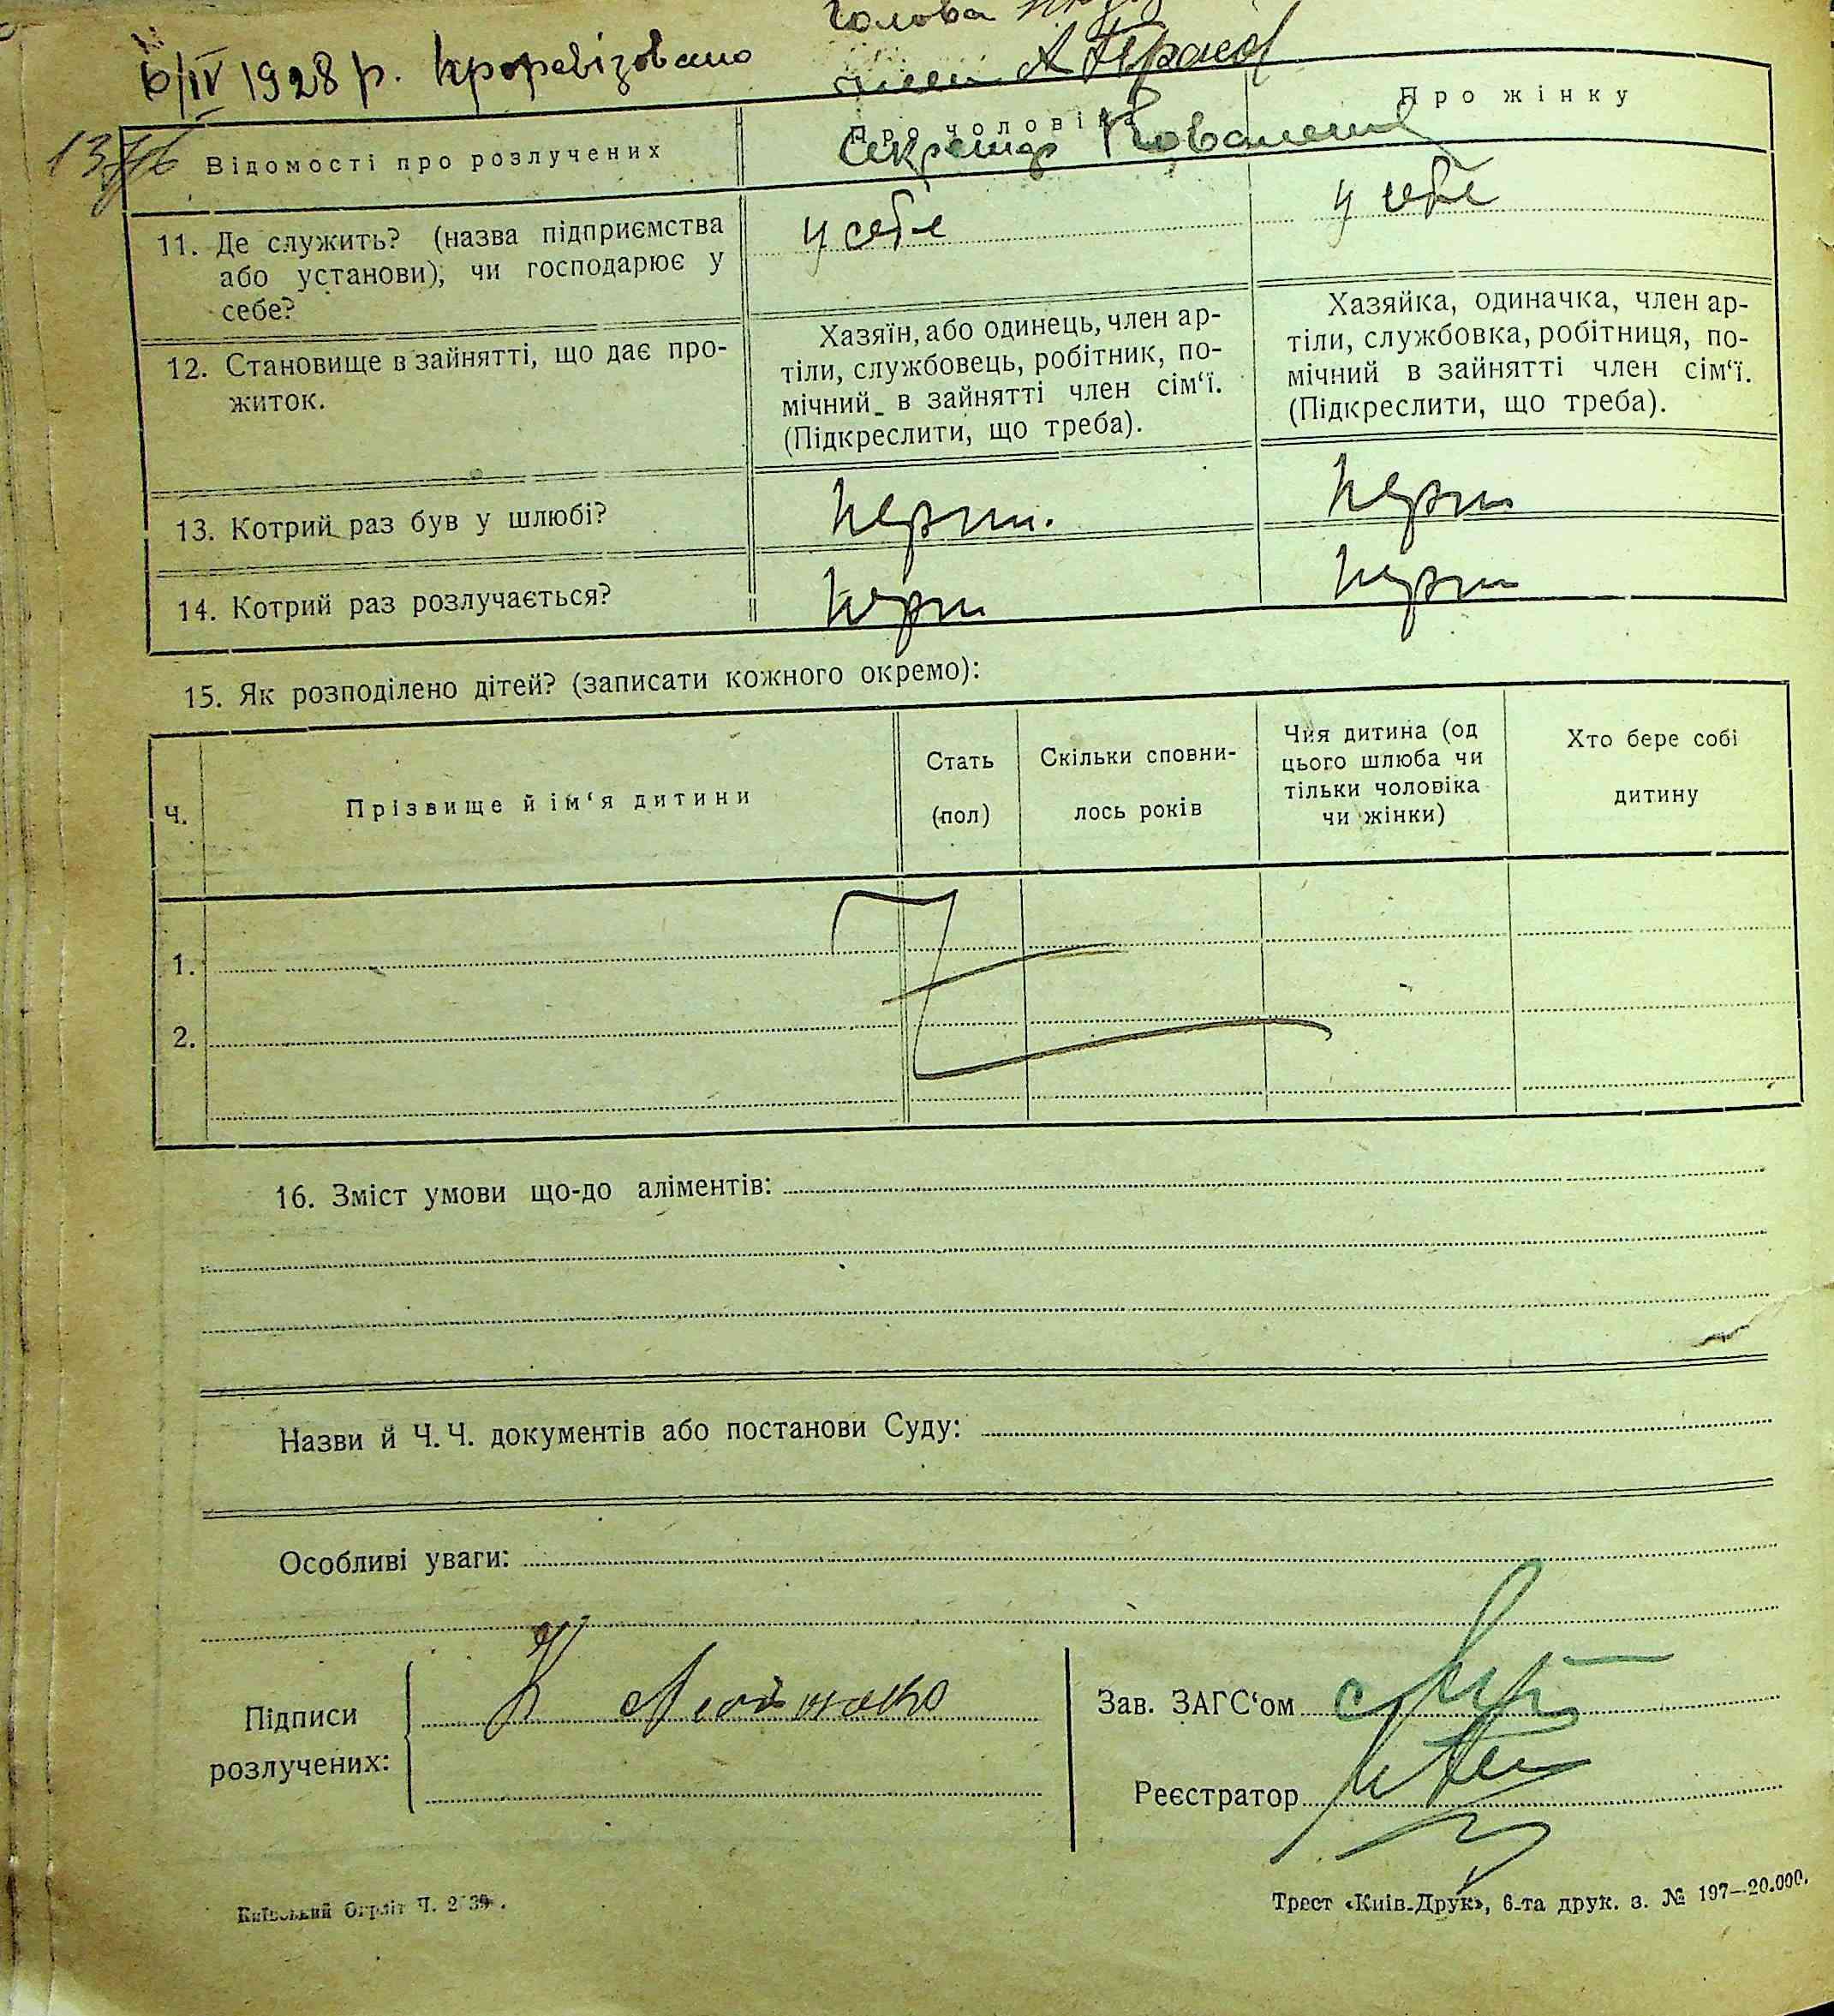 Голова
6/IV 1928 р. проревізовано
член
Секретар Коваленко
Відомості про розлучених
Про чоловіка
Про жінку
11. Де служить? (назва підприємства
або установи), чи господарює у
себе?
у себе
у себе
12. Становище в зайнятті, що дає про-
житток.
Хазяїн, або одинець, член ар-
тіли, службовець, робітник, по-
мічний в зайнятті член сім‘ї.
(Підкреслити, що треба).
Хазяйка, одиначка, член ар-
тіли, службовка, робітниця, по-
мічний в зайнятті член сім‘ї.
(Підкреслити, що треба).
13. Котрий раз був у шлюбі?
перш.
перш
14. Котрий раз розлучається?
перш
перш
15. Як розподілено дітей? (записати кожного окремо):
Ч.
Прізвище й ім‘я дитини
Стать
(пол)
Скільки сповни-
лось років
Чия дитина (од
цього шлюба чи
тільки чоловіка
чи жінки)
Хто бере собі
дитину
1.
2.
16. Зміст умови що-до аліментів:
Назви й Ч. Ч. документів або постанови Суду:
Особливі уваги:
Підписи
розлучених:
К
Зав. ЗАГС‘ом
Реєстратор
Київський Окрліт Ч.
Трест «Київ-Друк», 6-та друк. з. № 197—20.000.